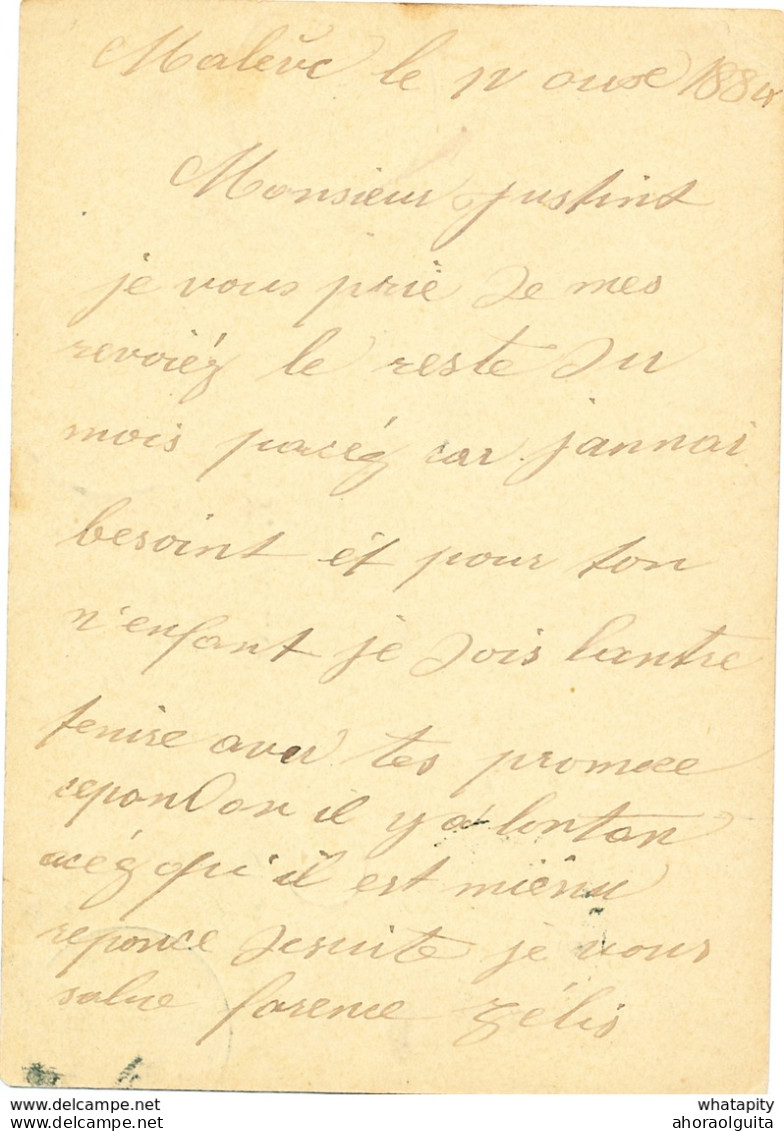 Malève le 11 ouse 1884
Monsieur justint
je vous prie de mes
revoiéz le reste du
mois pacéz car jannai
besoint ét pour ton
n'enfant je dois lantre
tenire avec tes promece
cepandan il y a lontan
acéz qu'il est miênu
reponce desuite je vous
salue farence zélis
whatapity
ahoraolguita